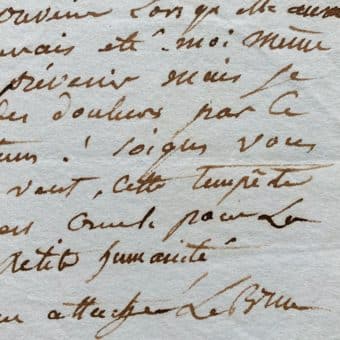 lorsqu'elle aura
été moi même
prévenir mais je
des douleurs par ce
! soignes vous
vent, cette tempête
cruele pour la
petite humanité
attaché Le Brun